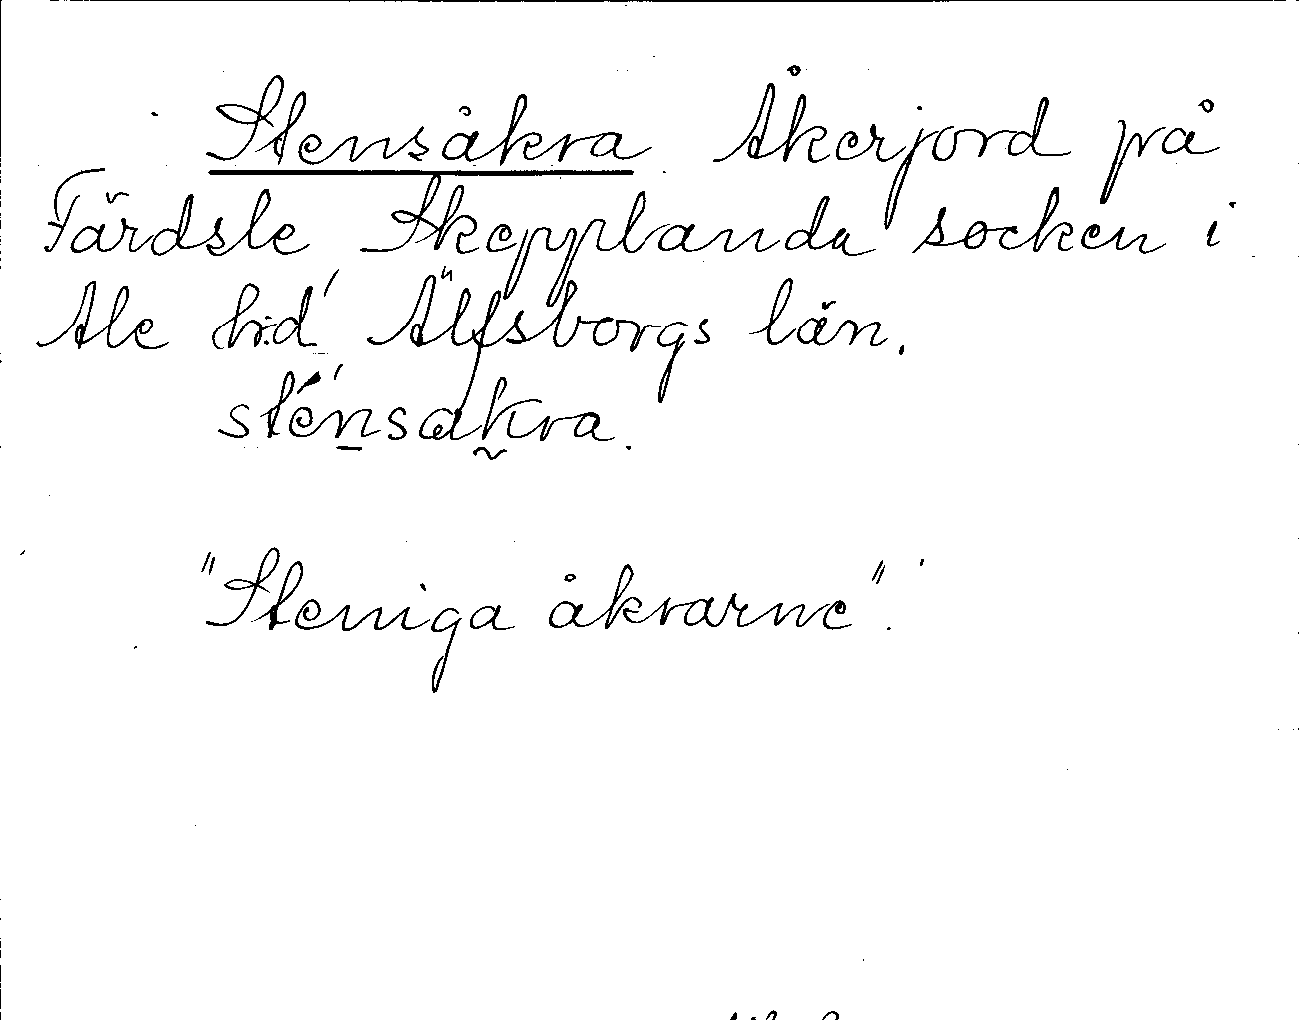 Stensåkra Åkerjord på
Färdsle Skepplanda socken i
Ale h:d Älfsborgs län.
sténsakra.
"Steniga åkrarne".